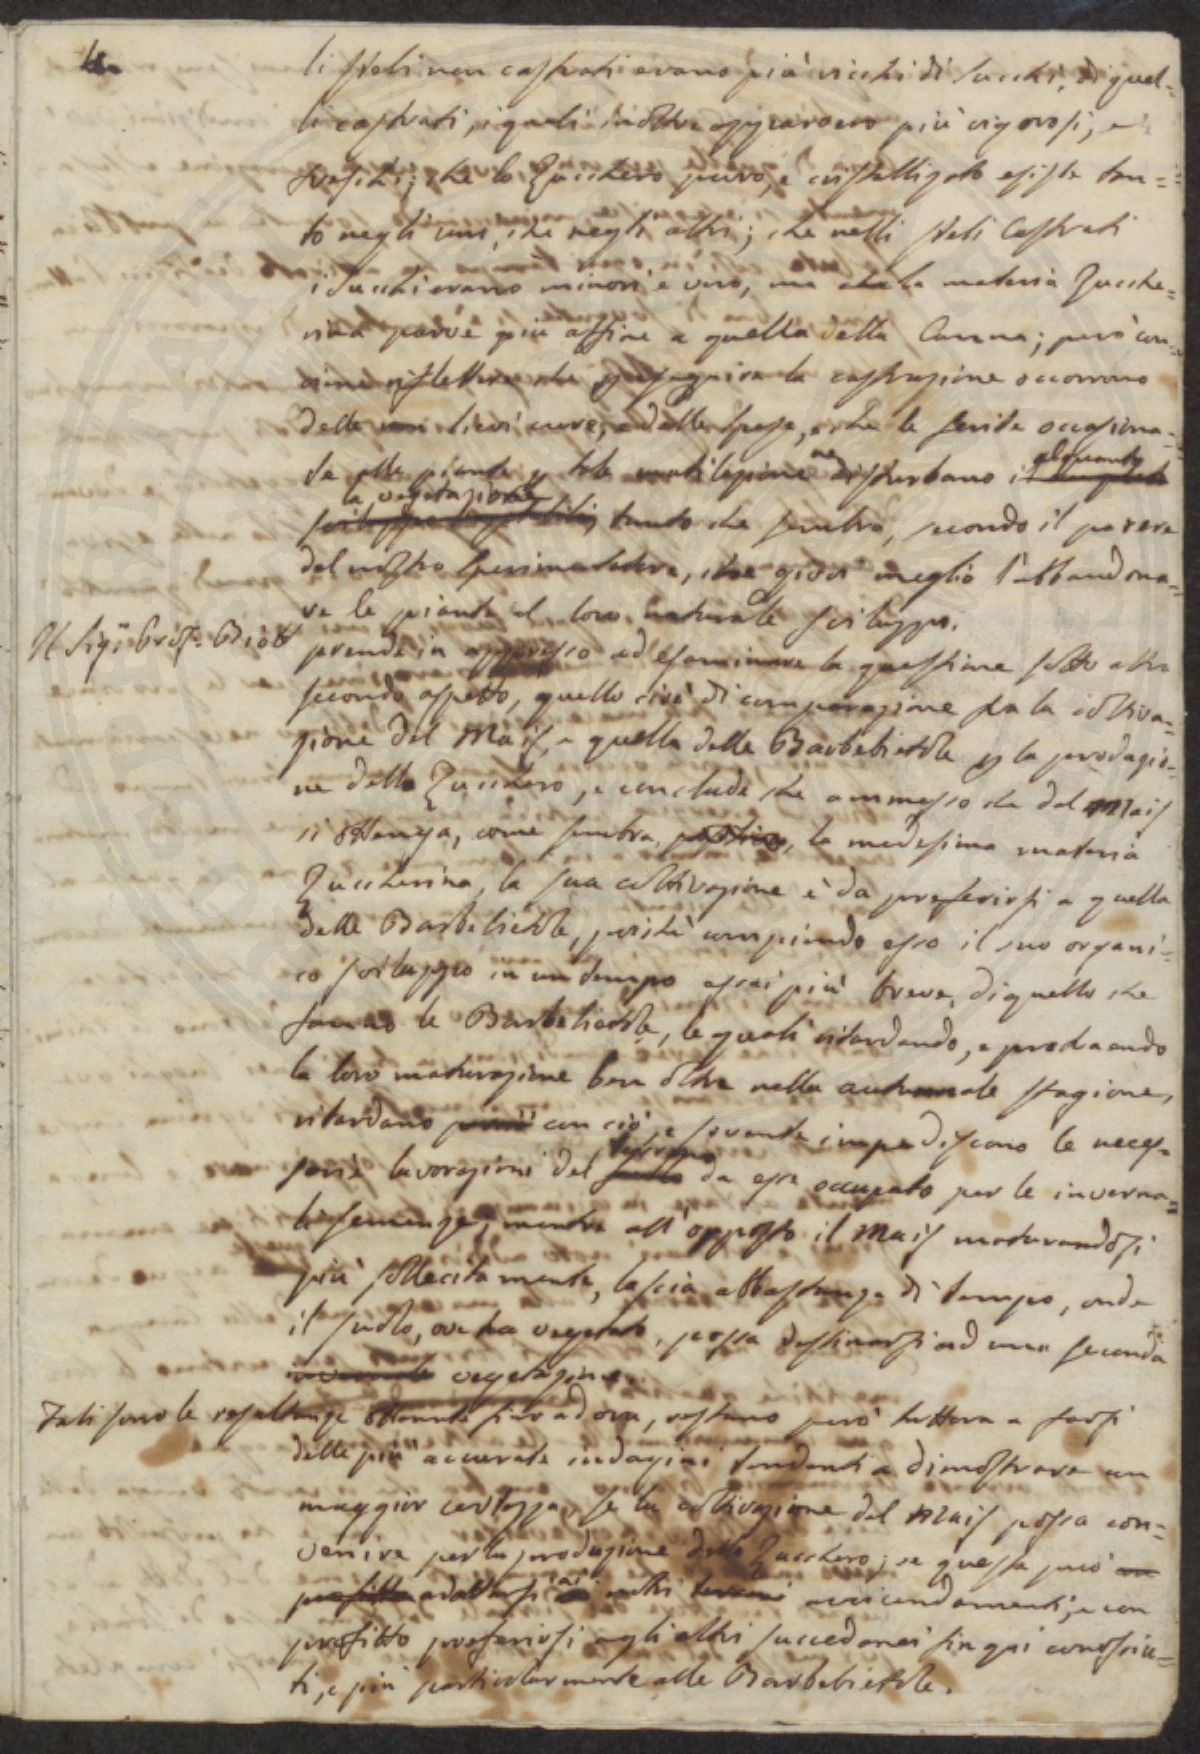 4.
li steli non castrati erano più ricchi di succhi, di quel=
li castrati, i quali inoltre apparvero più vigorosi, e
freschi; che lo Zucchero puro, e cristallizzato esiste tan=
to negli uni, che negli altri; che nelli steli Castrati
i succhi erano minori è vero, ma che la materia Zucche=
rina parve più affine a quella della Canna; però con=
viene riflettere che per eseguire la castrazione occorrono
delle non lievi cure, e delle spese, e che le ferite occasiona=
te alle piante per tale mutilazione ne disturbano alquanto
la vegetazione, tanto che sembra, secondo il parere
del nostro Sperimentatore, che giovi meglio l'abbandona=
re le piante al loro naturale sviluppo.
Il Sig.r Prof. Biot
prende in appresso ad esaminare la questione sotto altro
secondo aspetto, quello cioè di comparazione fra la coltiva=
zione del Mais, e quella delle Barbebietole per la produzio=
ne dello Zucchero, e conclude che ammesso che dal Mais
si ottenga, come sembra, la medesima materia
Zuccherina, la sua coltivazione è da preferirsi a quella
delle Barbebietole, poichè compiendo esso il suo organi=
co sviluppo in un tempo assai più breve, di quello che
fanno le Barbebietole, le quali ritardando, e protraendo
la loro maturazione ben oltre nella autunnale stagione,
ritardano con ciò, e sovente impediscono le neces=
sarie lavorazioni del terreno da esse occupato per le inverna=
li semenze, mentre all'opposto il Mais maturandosi
più sollecitamente, lascia abbastanza di tempo, onde
il suolo, ove ha vegetato, possa destinarsi ad una seconda
vegetazione.
Tali sono le resultanze ottenute fino ad ora, restano però tuttora a farsi
delle più accurate indagini tendenti a dimostrare con
maggior certezza, se la coltivazione del Mais possa con=
venire per la produzione dello Zucchero; se questa può
adattarsi ai nostri avvicendamenti, e con
profitto preferirsi agli altri succedanei fin qui conosciu=
ti, e più particolarmente alle Barbebietole.